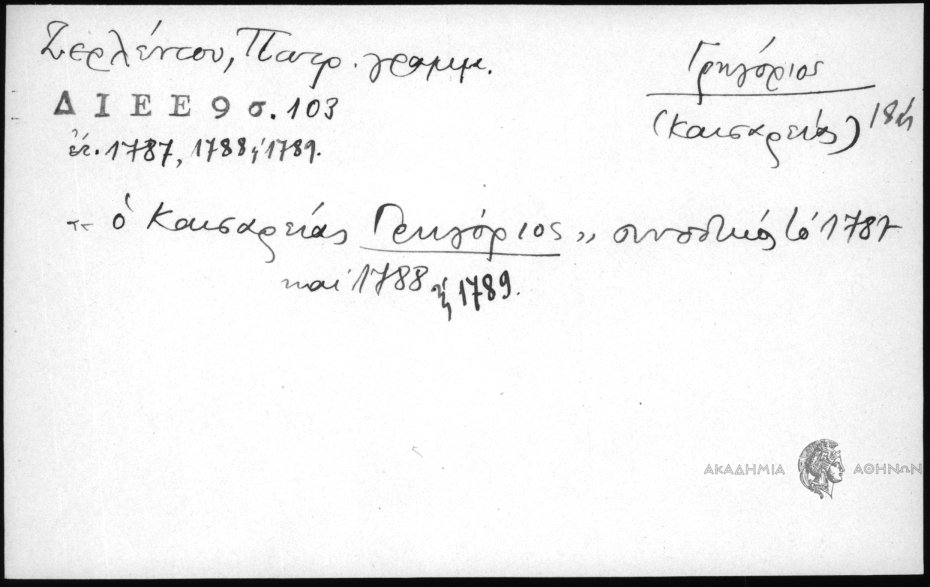 Ζερλέντου, Πατρ. γραμμ.
Δ Ι Ε Ε 9 σ. 103
ἔτ. 1787, 1788, 1789.
Γρηγόριος
(Καισαρείας) 18
« ὁ Καισαρείας Γρηγόριος » συνοδικός τό 1787
καί 1788 ἤ 1789.
ΑΚΑΔΗΜΙΑ ΑΘΗΝΩΝ